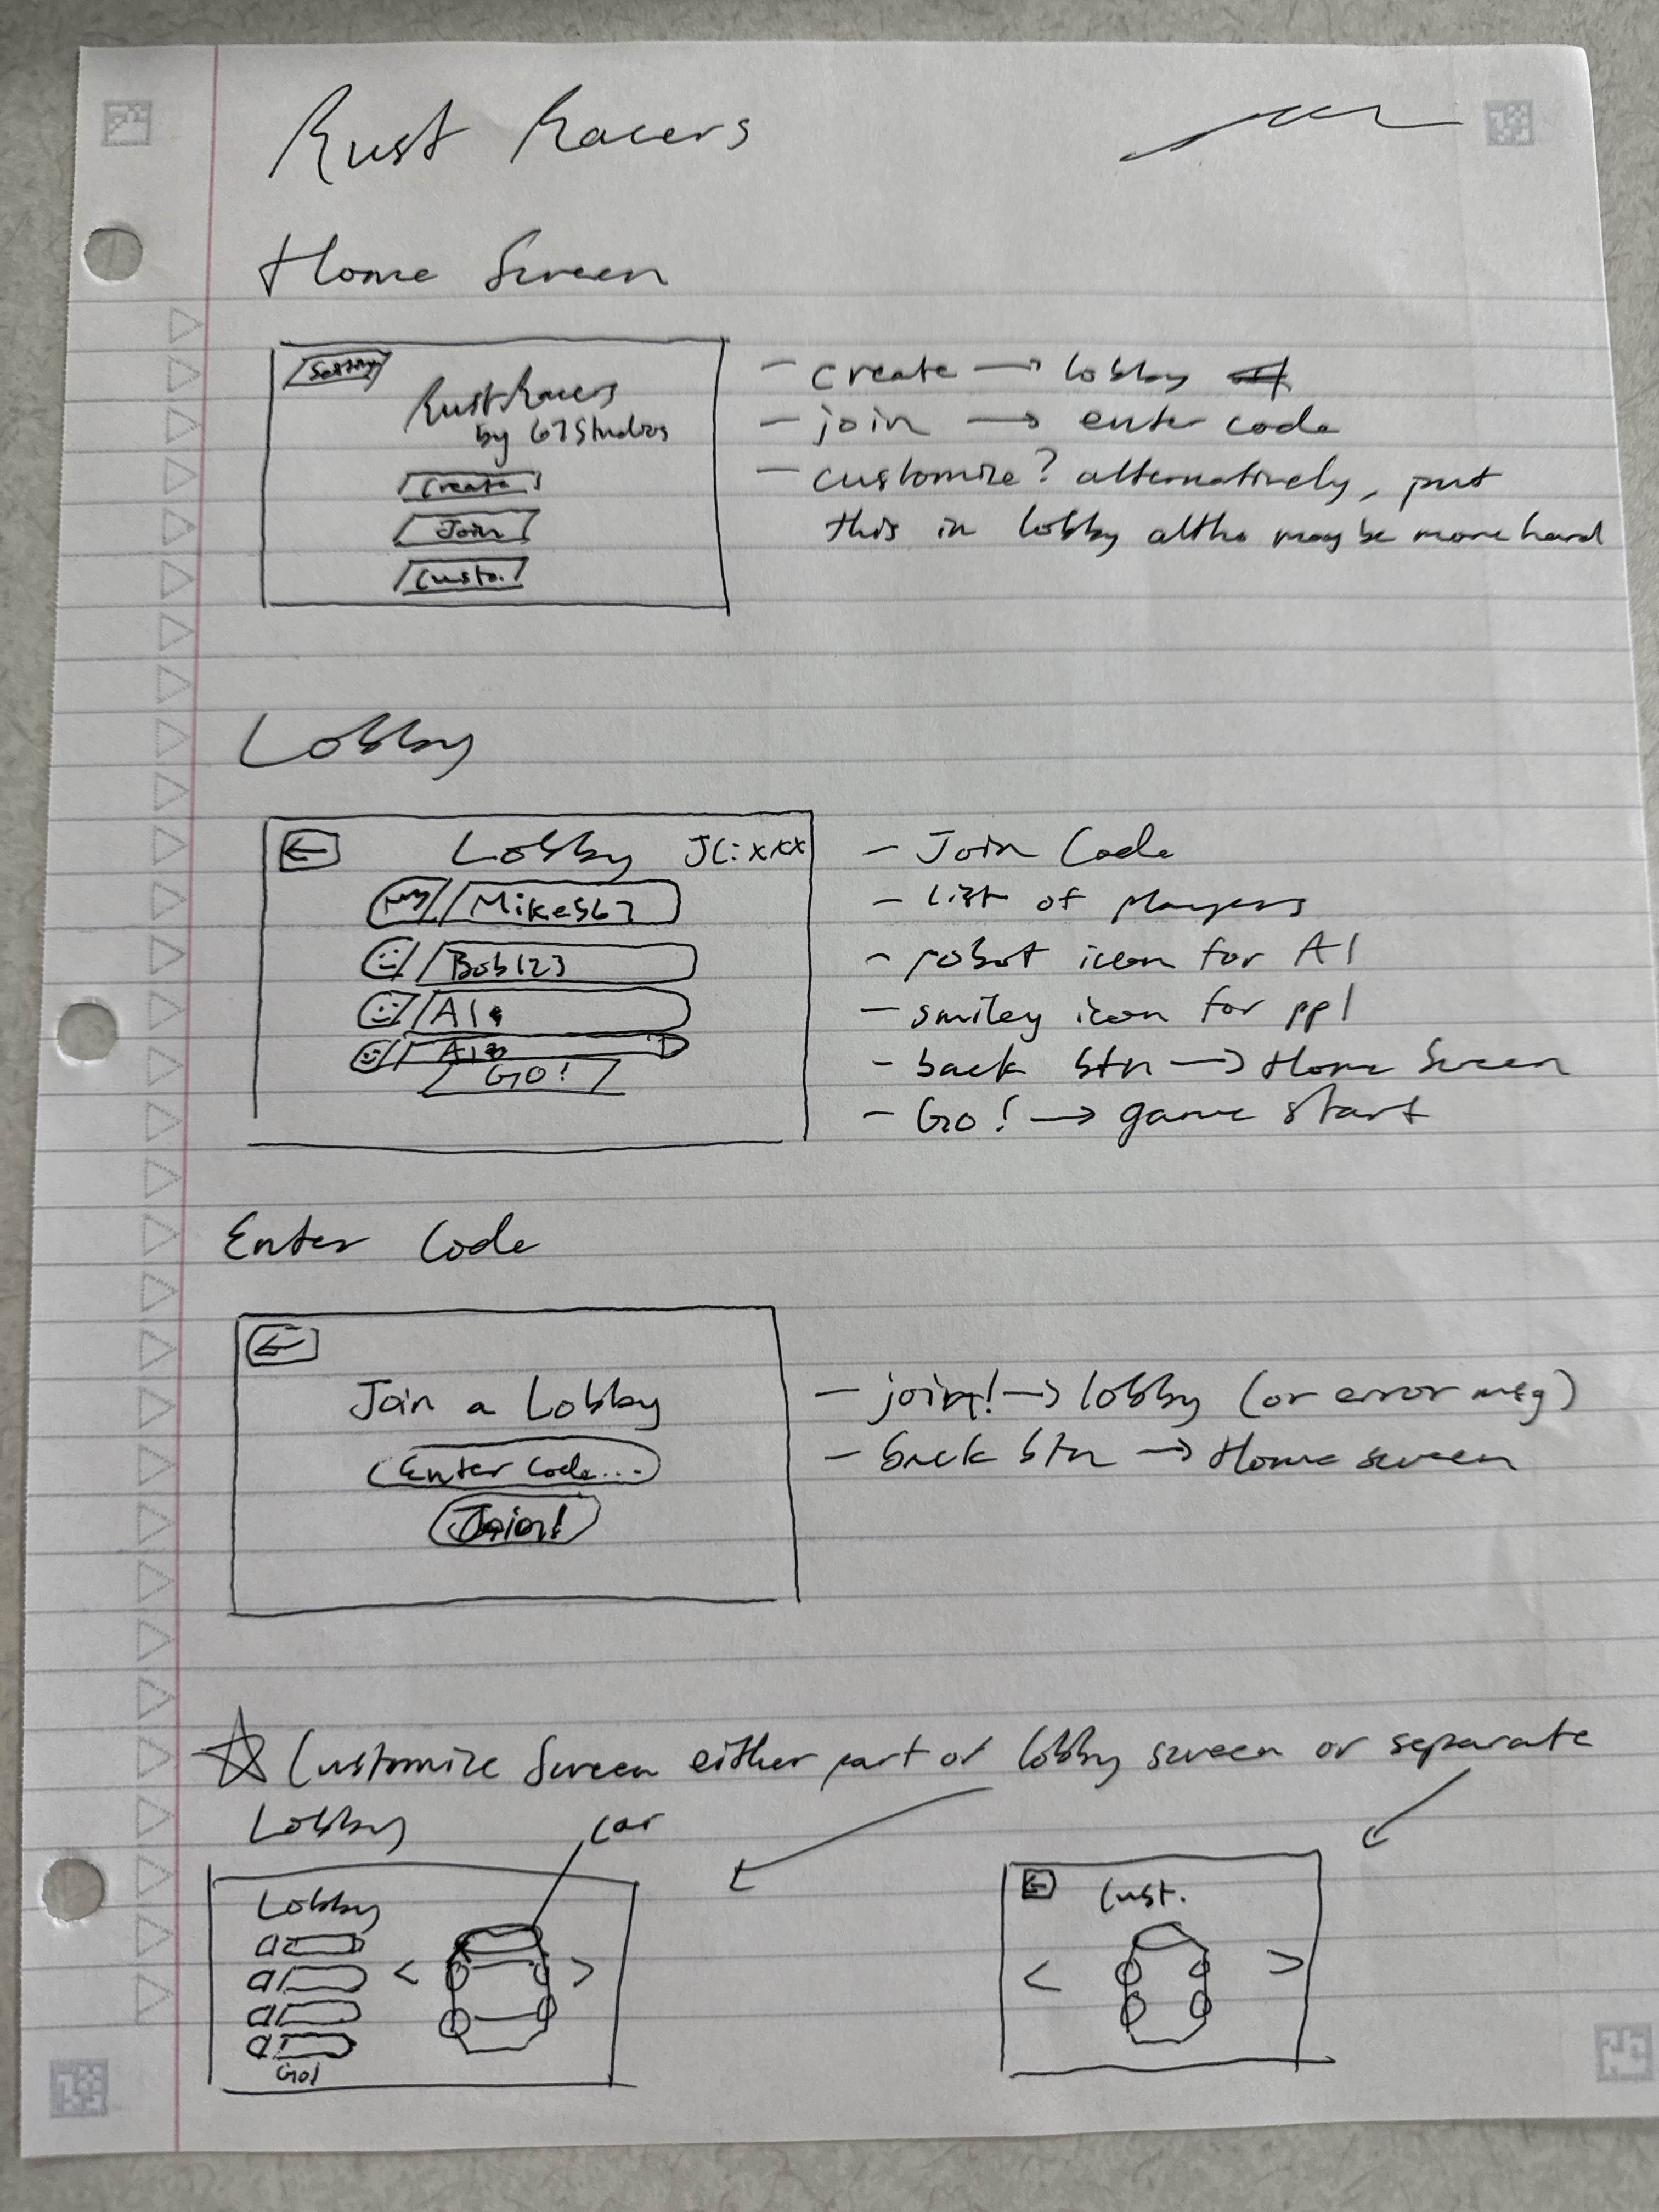 Rust Racers
Home Screen
Settings
Rust Racers
by 67 Studios
Create
Join
Custo.
- create → lobby
- join → enter code
- customize? alternatively, put
this in lobby altho may be more hard
Lobby
← Lobby JC: xxx
Mike567
Bob123
AI
AI
GO!
- Join Code
- list of players
- robot icon for AI
- smiley icon for ppl
- back btn → Home Screen
- Go! → game start
Enter Code
←
Join a Lobby
Enter Code...
Join!
- join! → lobby (or error msg)
- back btn → Home screen
☆ Customize Screen either part of lobby screen or separate
Lobby
car
Lobby
< >
Go!
← Cust.
< >